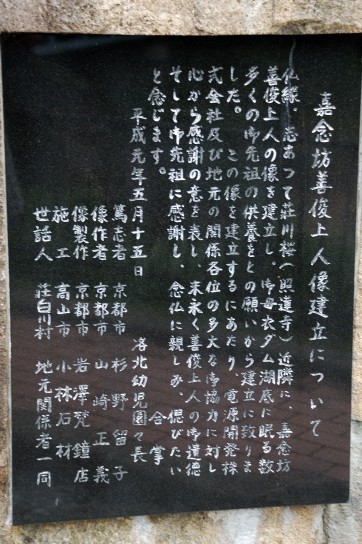 嘉念坊善俊上人像建立について
仏縁 志あつて荘川桜(照蓮寺)近隣に、嘉念坊
善俊上人の像を建立し、御母衣ダム湖底に眠る数
多くの御先祖の供養をとの願いから建立に致りま
した。 この像を建立するにあたり、電源開発株
式会社及び地元の関係各位の多大な御協力に対し
心から感謝の意を表し、末永く善俊上人の御遺徳
そして御先祖に感謝し、念仏に親しみ、偲びたい
と念じます。 合掌
平成元年五月十五日 洛北幼児園々長
篤志者 京都市 杉野留子
像作者 京都市 山崎正義
像製作 京都市 岩澤梵鐘店
施工 高山市 小林石材
世話人 荘白川村 地元関係者一同